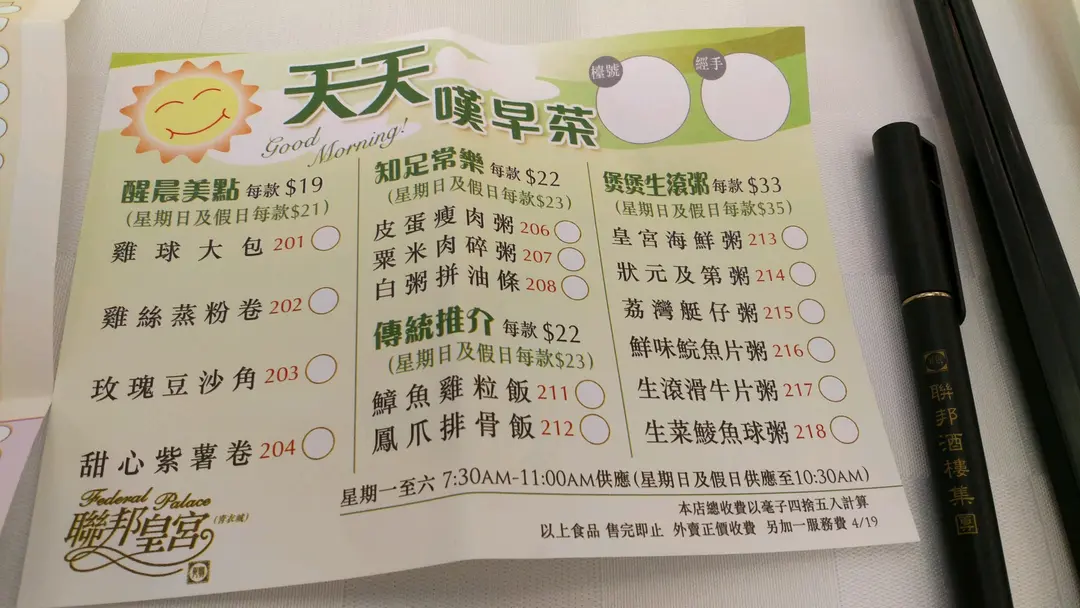 天天
嘆早茶
Good
Morning!
檯號
經手
醒晨美點 每款 $19
(星期日及假日每款$21)
雞球大包 201
雞絲蒸粉卷 202
玫瑰豆沙角 203
甜心紫薯卷 204
知足常樂 每款 $22
(星期日及假日每款$23)
皮蛋瘦肉粥 206
粟米肉碎粥 207
白粥拼油條 208
傳統推介 每款 $22
(星期日及假日每款$23)
鱆魚雞粒飯 211
鳳爪排骨飯 212
煲煲生滾粥 每款 $33
(星期日及假日每款$35)
皇宮海鮮粥 213
狀元及第粥 214
荔灣艇仔粥 215
鮮味鯇魚片粥 216
生滾滑牛片粥 217
生菜鯪魚球粥 218
星期一至六 7:30AM-11:00AM供應(星期日及假日供應至10:30AM)
本店總收費以毫子四捨五入計算
以上食品 售完即止 外賣正價收費 另加一服務費 4/19
Federal Palace
聯邦皇宮 (青衣城)
聯邦酒樓集團